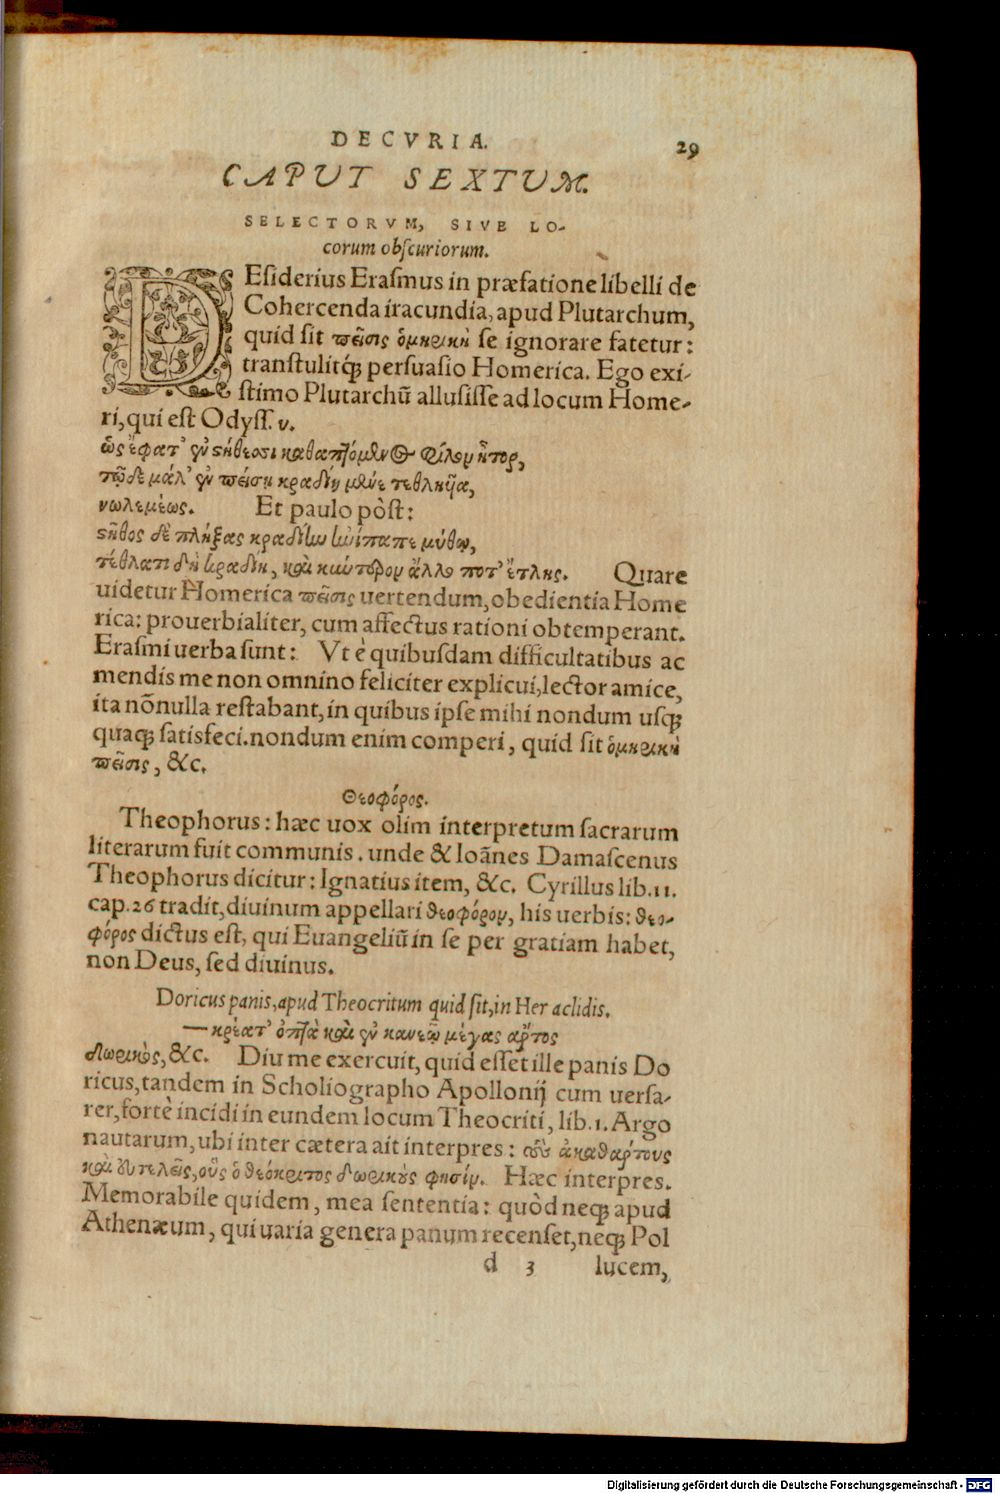 DECVRIA.
29
CAPUT SEXTUM.
SELECTORVM, SIVE LO-
corum obſcuriorum.
DEſiderius Eraſmus in præfatione libelli de
Cohercenda iracundia, apud Plutarchum,
quid ſit πεῖσις ὁμηρικὴ ſe ignorare fatetur:
tranſtulitq́; perſuaſio Homerica. Ego exi-
ſtimo Plutarchū alluſiſſe ad locum Home-
ri, qui eſt Odyſſ. υ.
ὣς ἔφατ' ἐν στήθεσσι καθαπτόμενος φίλον ἦτορ,
τῷ δὲ μάλ' ἐν πείσῃ κραδίη μένε τετληυῖα,
νωλεμέως. Et paulo pòſt:
στῆθος δὲ πλήξας κραδίην ἠνίπαπε μύθῳ,
τέτλαθι δὴ κραδίη, καὶ κύντερον ἄλλο ποτ' ἔτλης. Quare
uidetur Homerica πεῖσις uertendum, obedientia Home
rica: prouerbialiter, cum affectus rationi obtemperant.
Eraſmi uerba ſunt: Vt è quibuſdam difficultatibus ac
mendis me non omnino feliciter explicui, lector amice,
ita nōnulla reſtabant, in quibus ipſe mihi nondum uſq;
quaq; ſatisfeci. nondum enim comperi, quid ſit ὁμηρικὴ
πεῖσις, &c.
Θεοφόρος.
Theophorus: hæc uox olim interpretum ſacrarum
literarum fuit communis. unde & Ioānes Damaſcenus
Theophorus dicitur: Ignatius item, &c. Cyrillus lib. 11.
cap. 26 tradit, diuinum appellari θεοφόρον, his uerbis: θεο-
φόρος dictus eſt, qui Euangeliū in ſe per gratiam habet,
non Deus, ſed diuinus.
Doricus panis, apud Theocritum quid ſit, in Heraclidis.
— κρέατ' ὀπτὰ καὶ ἐν κανέῳ μέγας ἄρτος
δωρικὸς, &c. Diu me exercuit, quid eſſet ille panis Do
ricus, tandem in Scholiographo Apollonij cum uerſa-
rer, fortè incidi in eundem locum Theocriti, lib. 1. Argo
nautarum, ubi inter cætera ait interpres: τοὺς ἀκαθάρτους
καὶ εὐτελεῖς, οὓς ὁ θεόκριτος δωρικούς φησίν. Hæc interpres.
Memorabile quidem, mea ſententia: quòd neq; apud
Athenæum, qui uaria genera panum recenſet, neq; Pol
d 3 lucem,
Digitalisierung gefördert durch die Deutsche Forschungsgemeinschaft - DFG